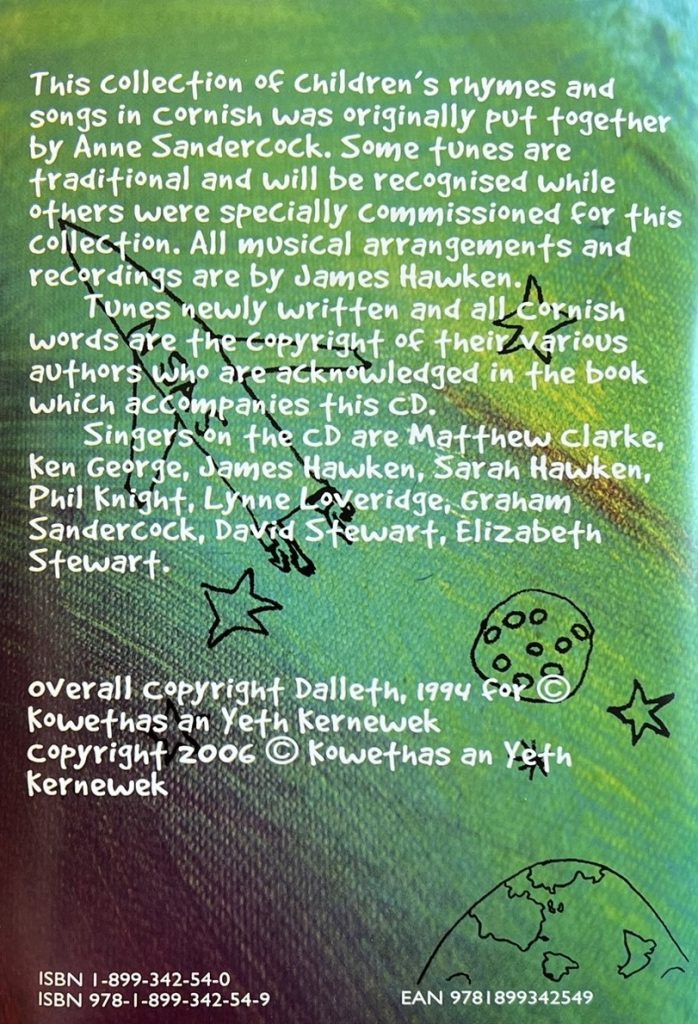 This collection of children's rhymes and
songs in Cornish was originally put together
by Anne Sandercock. Some tunes are
traditional and will be recognised while
others were specially commissioned for this
collection. All musical arrangements and
recordings are by James Hawken.
Tunes newly written and all Cornish
words are the copyright of their various
authors who are acknowledged in the book
which accompanies this CD.
Singers on the CD are Matthew Clarke,
Ken George, James Hawken, Sarah Hawken,
Phil Knight, Lynne Loveridge, Graham
Sandercock, David Stewart, Elizabeth
Stewart.
overall copyright Dalleth, 1994 for ©
Kowethas an Yeth Kernewek
copyright 2006 © Kowethas an Yeth
Kernewek
ISBN 1-899-342-54-0
ISBN 978-1-899-342-54-9
EAN 9781899342549